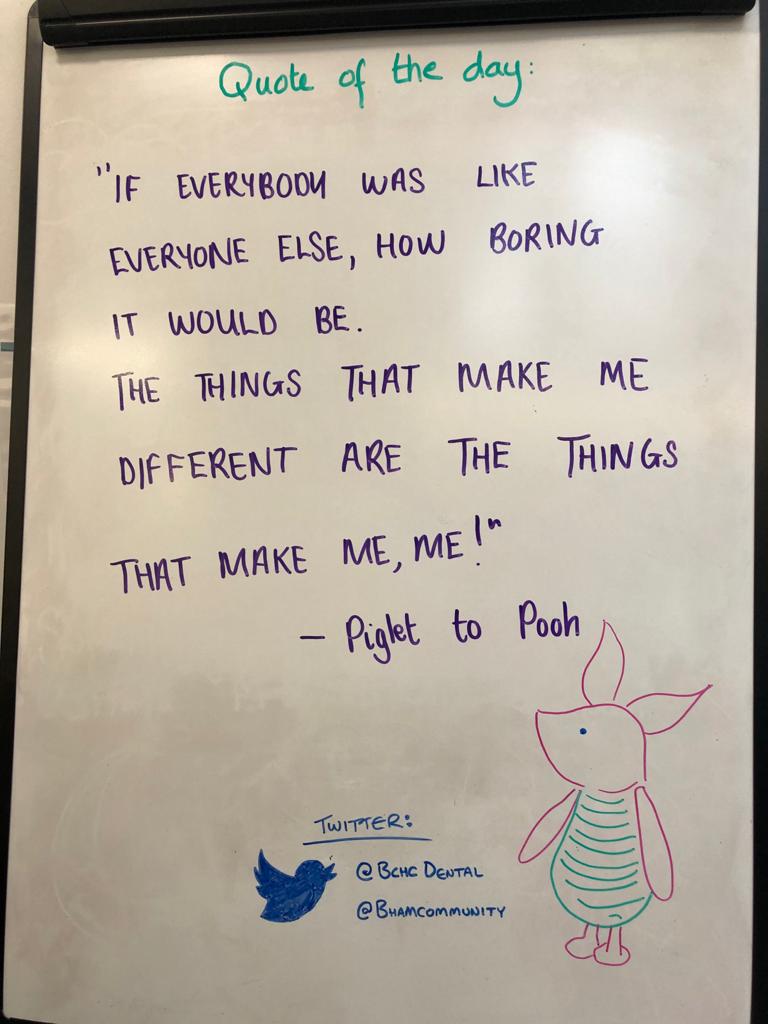 Quote of the day:
"IF EVERYBODY WAS LIKE
EVERYONE ELSE, HOW BORING
IT WOULD BE.
THE THINGS THAT MAKE ME
DIFFERENT ARE THE THINGS
THAT MAKE ME, ME!"
– Piglet to Pooh
TWITTER:
@BCHC DENTAL
@BHAMCOMMUNITY